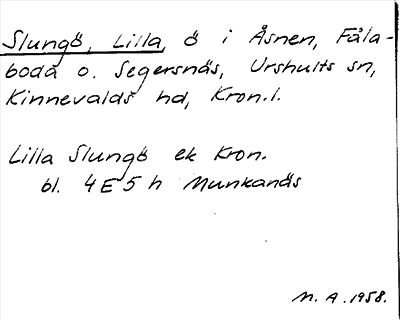 Slungö, Lilla, ö i Åsnen, Fåla-
boda o. Segersnäs, Urshults sn,
Kinnevalds hd, Kron.l.
Lilla Slungö ek Kron.
bl. 4E5h Munkanäs
M. A. 1958.